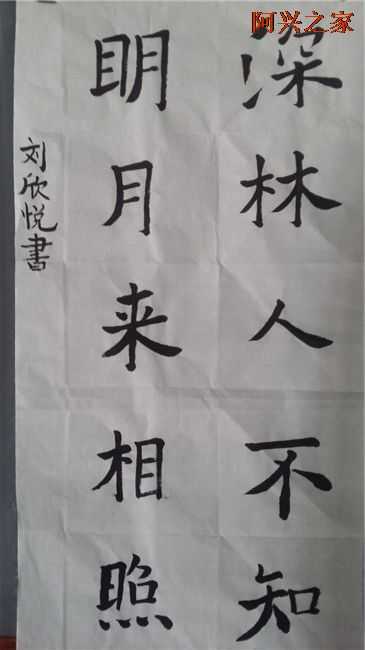 阿兴之家
深林人不知
明月来相照
刘欣悦書